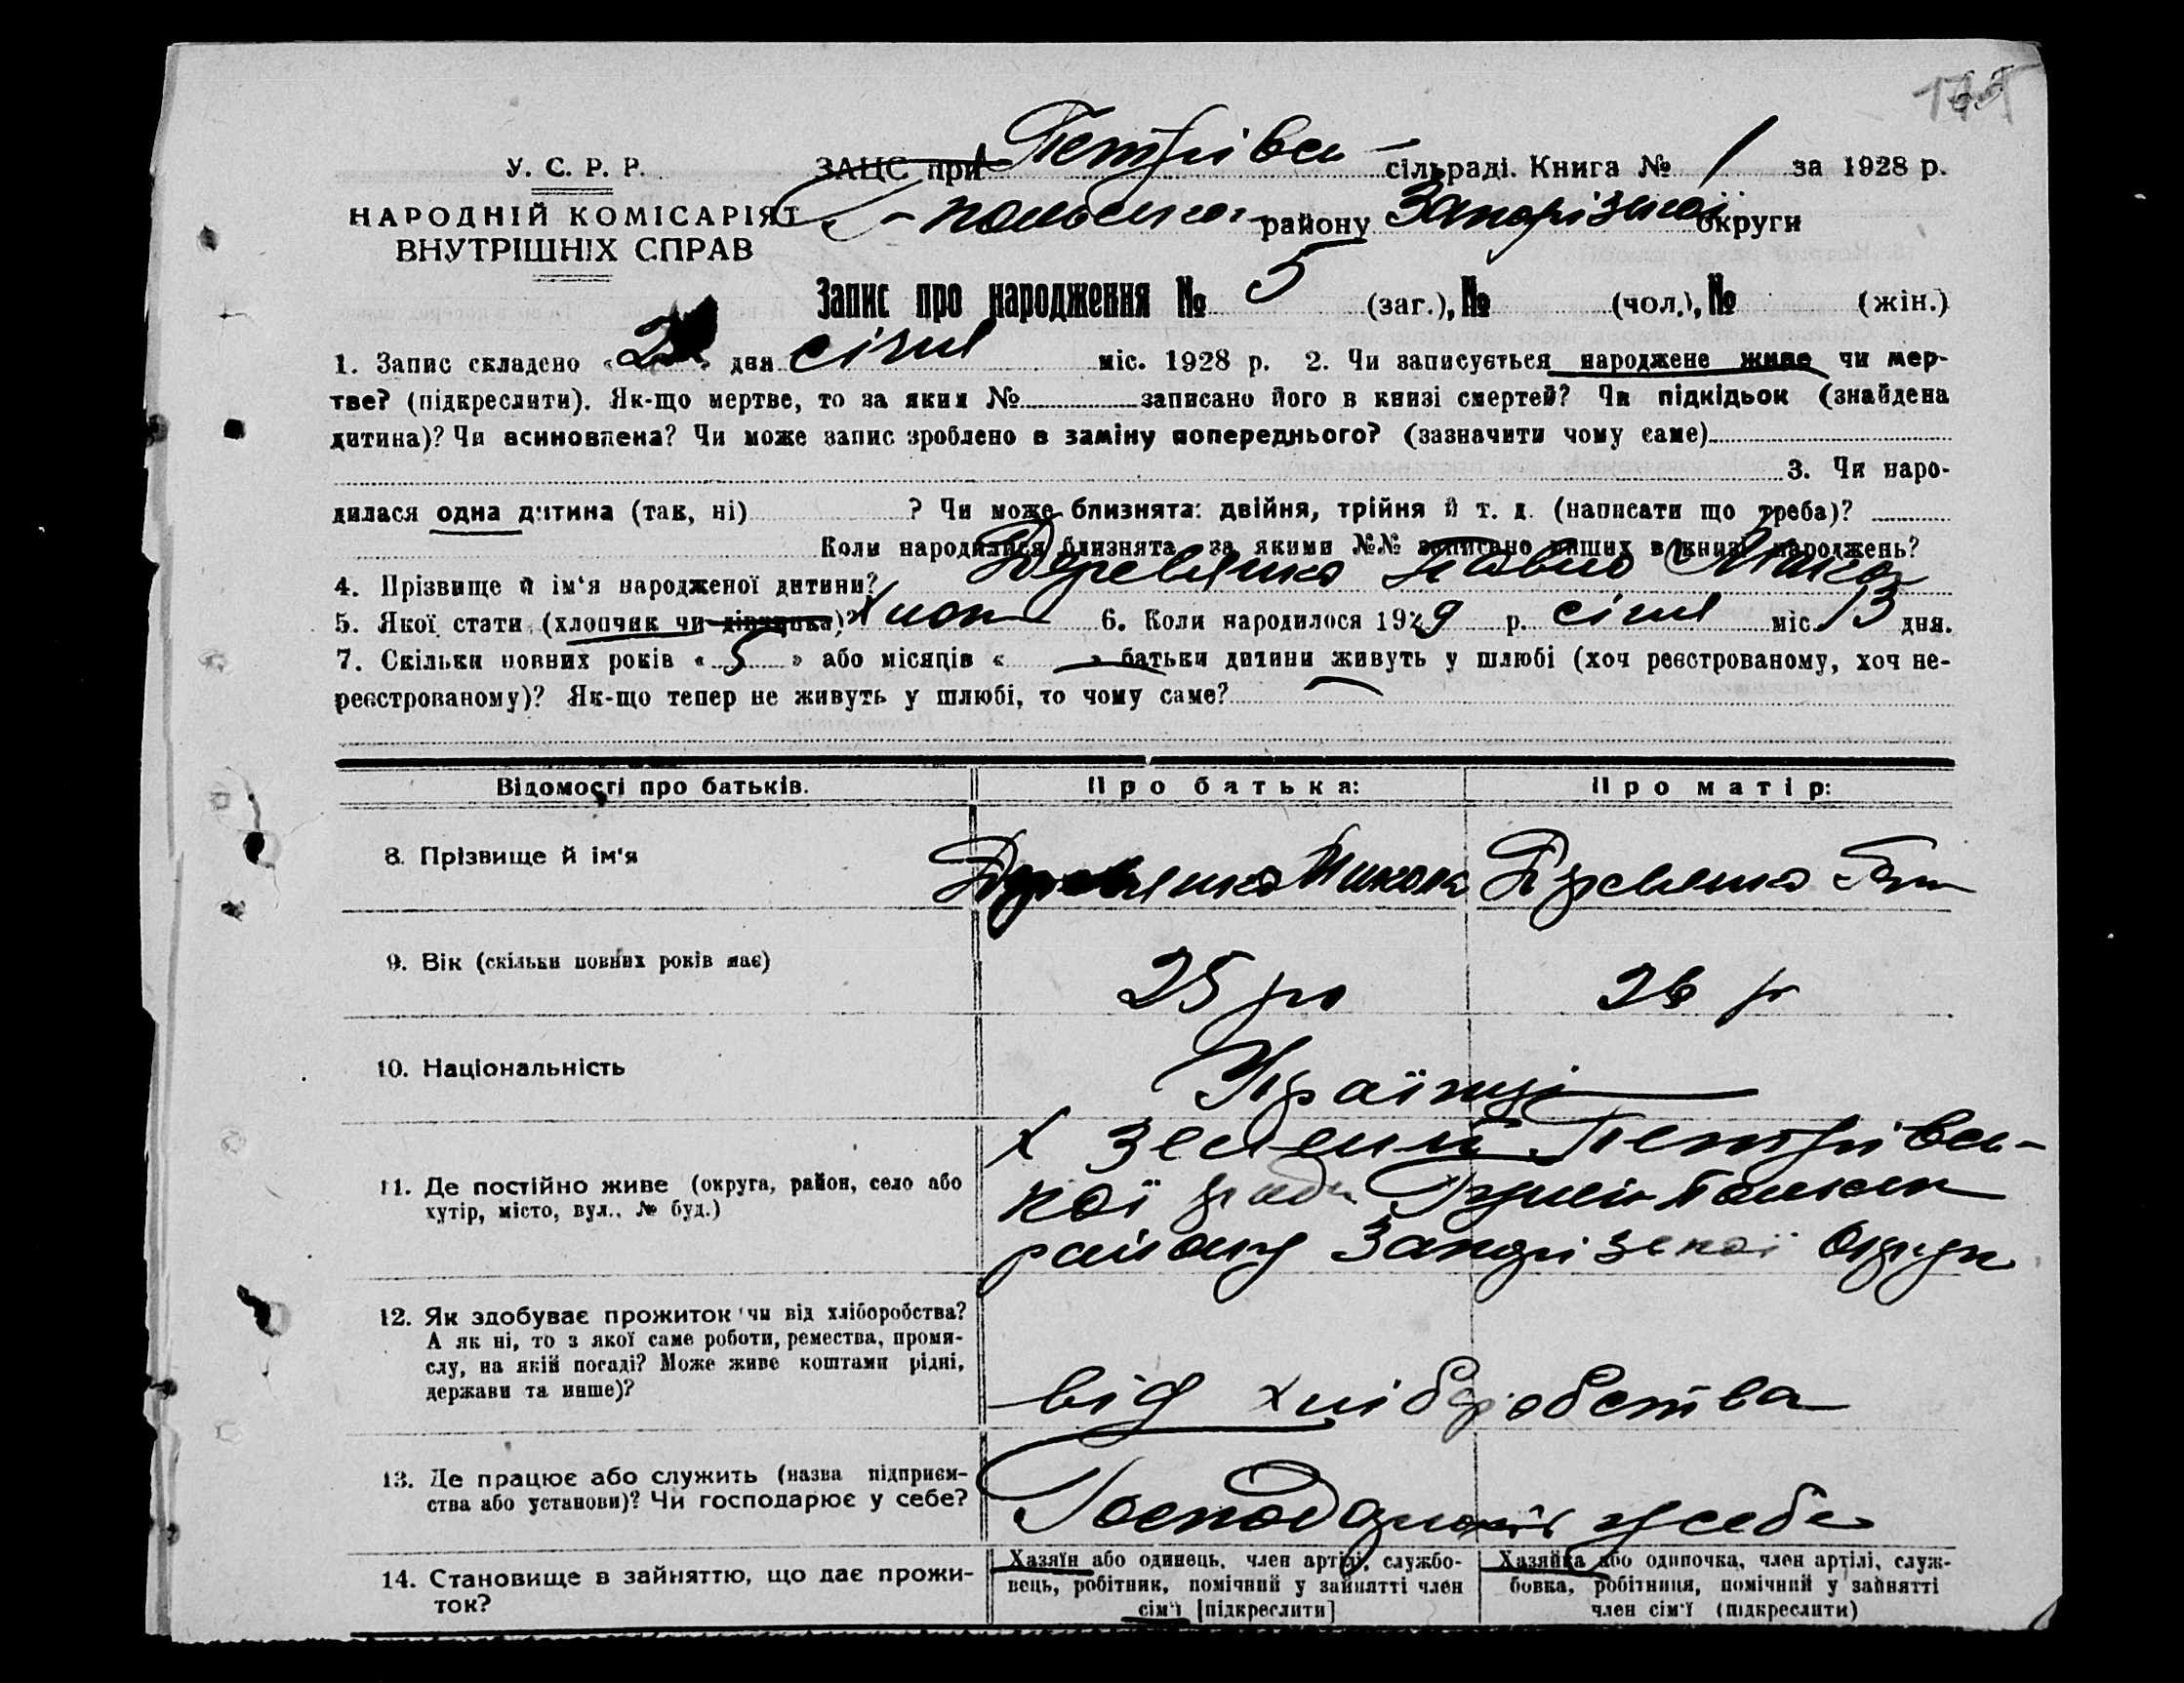 У. С. Р. Р.
НАРОДНІЙ КОМІСАРІЯТ
ВНУТРІШНІХ СПРАВ
ЗАЦС при Петрівсь- сільраді. Книга № 1 за 1928 р.
району Запорізької округи
Запис про народження № 5 (заг.), № (чол.), № (жін.)
1. Запис складено « » дня січня міс. 1928 р. 2. Чи записується народжене живе чи мер-
тве? (підкреслити). Як-що мертве, то за яким № записано його в книзі смертей? Чи підкідьок (знайдена
дитина)? Чи всиновлена? Чи може запис зроблено в заміну попереднього? (зазначити чому саме)
3. Чи наро-
дилася одна дитина (так, ні) ? Чи може близнята: двійня, трійня й т. д. (написати що треба)?
Коли народилися близнята, за якими №№ записано инших в книзі народжень?
4. Прізвище й ім'я народженої дитини? Деревянко Павло
5. Якої статі (хлопчик чи дівчинка)? Хлоп 6. Коли народилося 1929 р. січня міс. 13 дня.
7. Скільки повних років « 5 » або місяців « » батьки дитини живуть у шлюбі (хоч реєстрованому, хоч не-
реєстрованому)? Як-що тепер не живуть у шлюбі, то чому саме?
Відомості про батьків. Про батька: Про матір:
8. Прізвище й ім'я Деревянко Микола Деревянко
9. Вік (скільки повних років має) 25 ро 26 р
10. Національність Українці
11. Де постійно живе (округа, район, село або
хутір, місто, вул., № буд.)
х Зелений Петрівсь-
кої ради
району Запорізької округи
12. Як здобуває прожиток чи від хліборобства?
А як ні, то з якої саме роботи, ремества, проми-
слу, на якій посаді? Може живе коштами рідні,
держави та инше)?
від хліборобства
13. Де працює або служить (назва підприєм-
ства або установи)? Чи господарює у себе?
у себе
14. Становище в зайняттю, що дає прожи-
ток?
Хазяїн або одинець, член артілі, службо-
вець, робітник, помічний у зайнятті член
сім'ї [підкреслити]
Хазяйка або одиночка, член артілі, служ-
бовка, робітниця, помічний у зайнятті
член сім'ї (підкреслити)